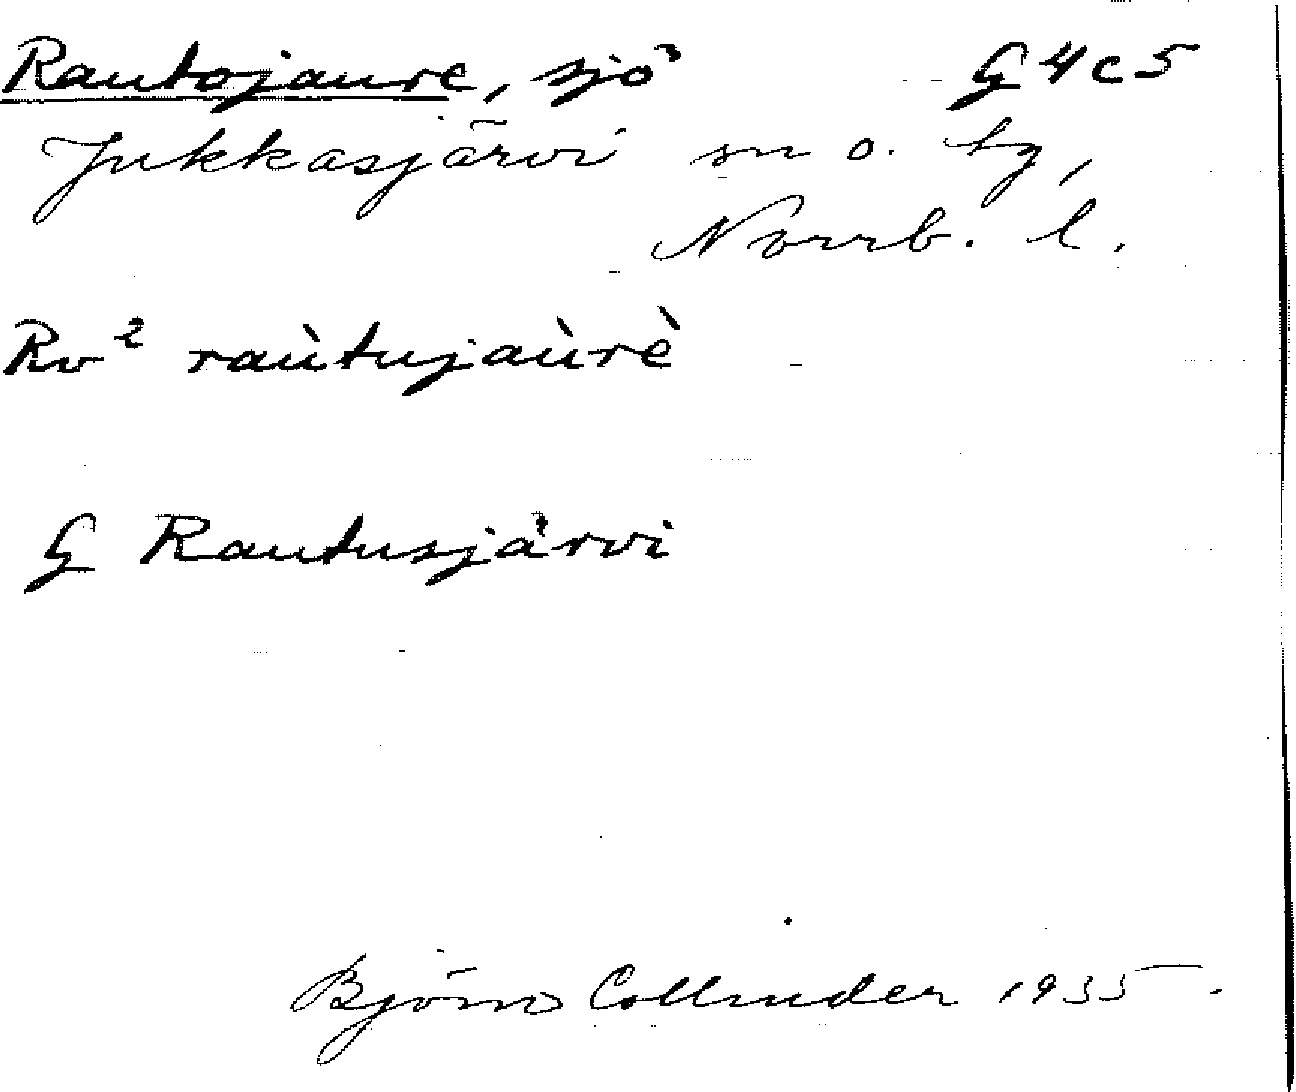 Rautojaure, sjö G 4 c 5
Jukkasjärvi sn o. tg,
Norrb. l.
Rv² raùtujaùrè
G Rautusjärvi
Björn Collinder 1935.